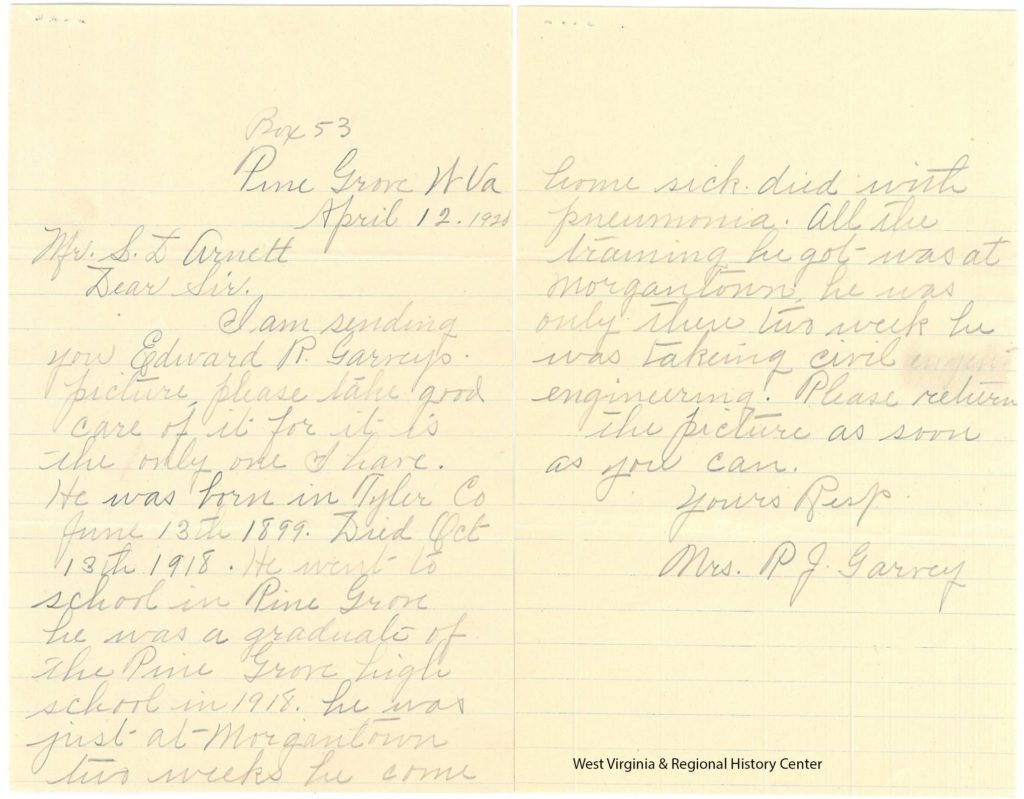 Box 53
Pine Grove W Va
April 12. 1920
Mr. S. L Arnett
Dear Sir.
I am sending
you Edward R. Garveys.
picture, please take good
care of it for it is
the only one I have.
He was born in Tyler Co
June 13th 1899. Died Oct
13th 1918. He went to
school in Pine Grove
he was a graduate of
the Pine Grove high
school in 1918. he was
just at Morgantown
two weeks he come
home sick. died with
pneumonia. All the
training he got was at
Morgantown, he was
only there two week he
was takeing civil
engineering. Please return
the picture as soon
as you can.
Yours Resp.
Mrs. R J. Garvey
West Virginia & Regional History Center